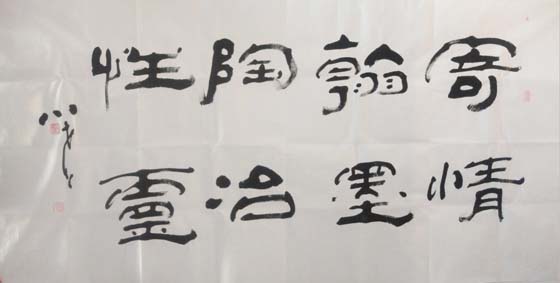 寄情
翰墨
陶冶
性靈